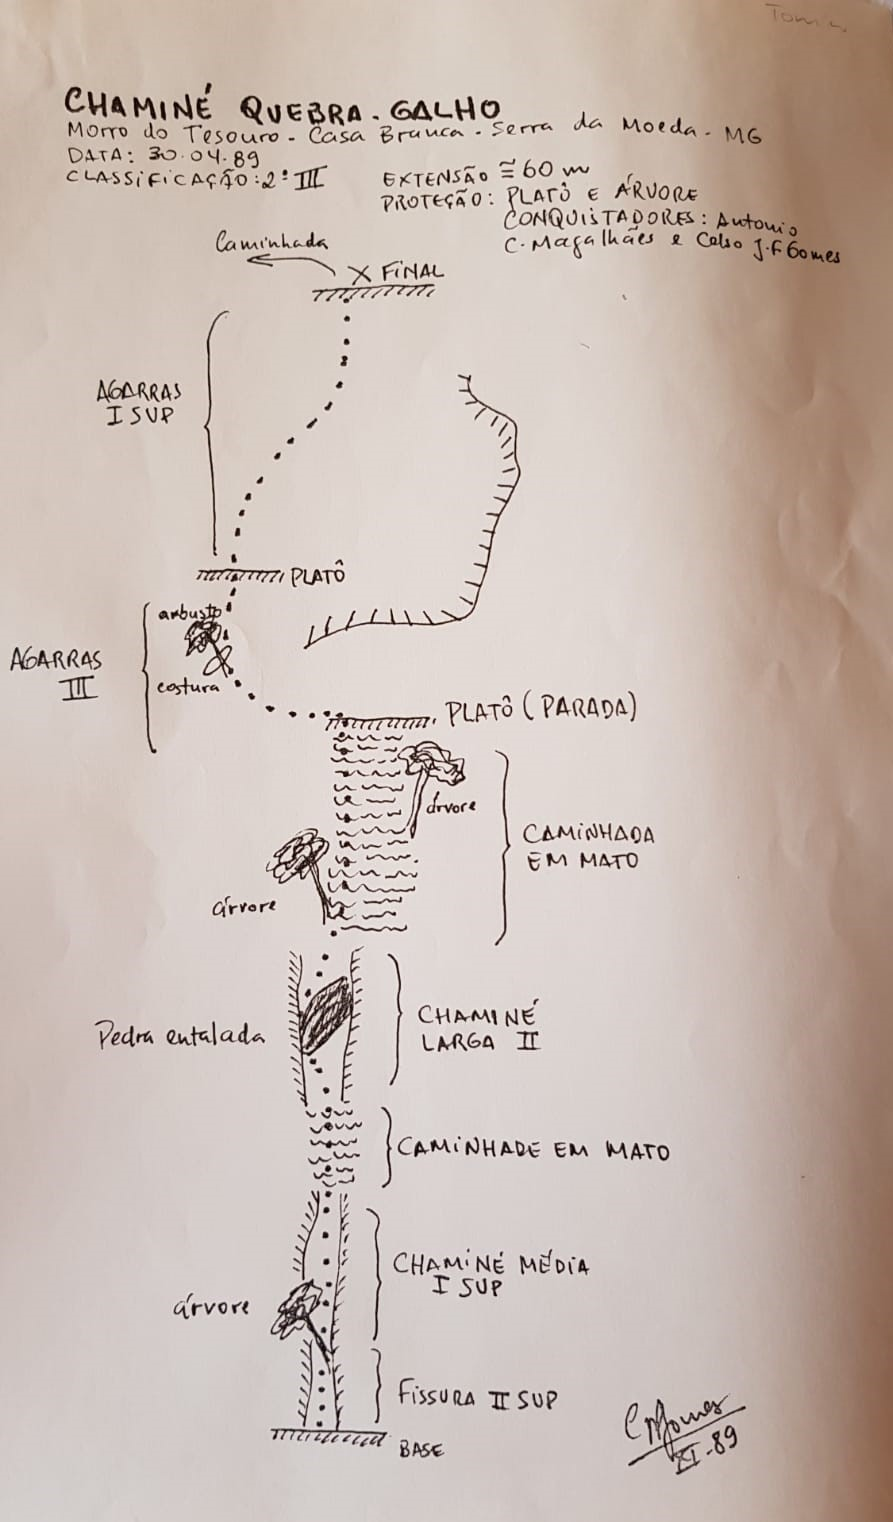 CHAMINÉ QUEBRA-GALHO
Morro do Tesouro - Casa Branca - Serra da Moeda - MG
DATA: 30.04.89
CLASSIFICAÇÃO: 2º III
EXTENSÃO ≅ 60 m
PROTEÇÃO: PLATÔ E ÁRVORE
CONQUISTADORES: Antonio
C. Magalhães e Celso J.F Gomes
Caminhada
X FINAL
AGARRAS
I SUP
PLATÔ
arbusto
AGARRAS
III
costura
PLATÔ (PARADA)
árvore
CAMINHADA
EM MATO
árvore
Pedra entalada
CHAMINÉ
LARGA II
CAMINHADE EM MATO
CHAMINÉ MÉDIA
I SUP
árvore
FISSURA II SUP
BASE
XI-89